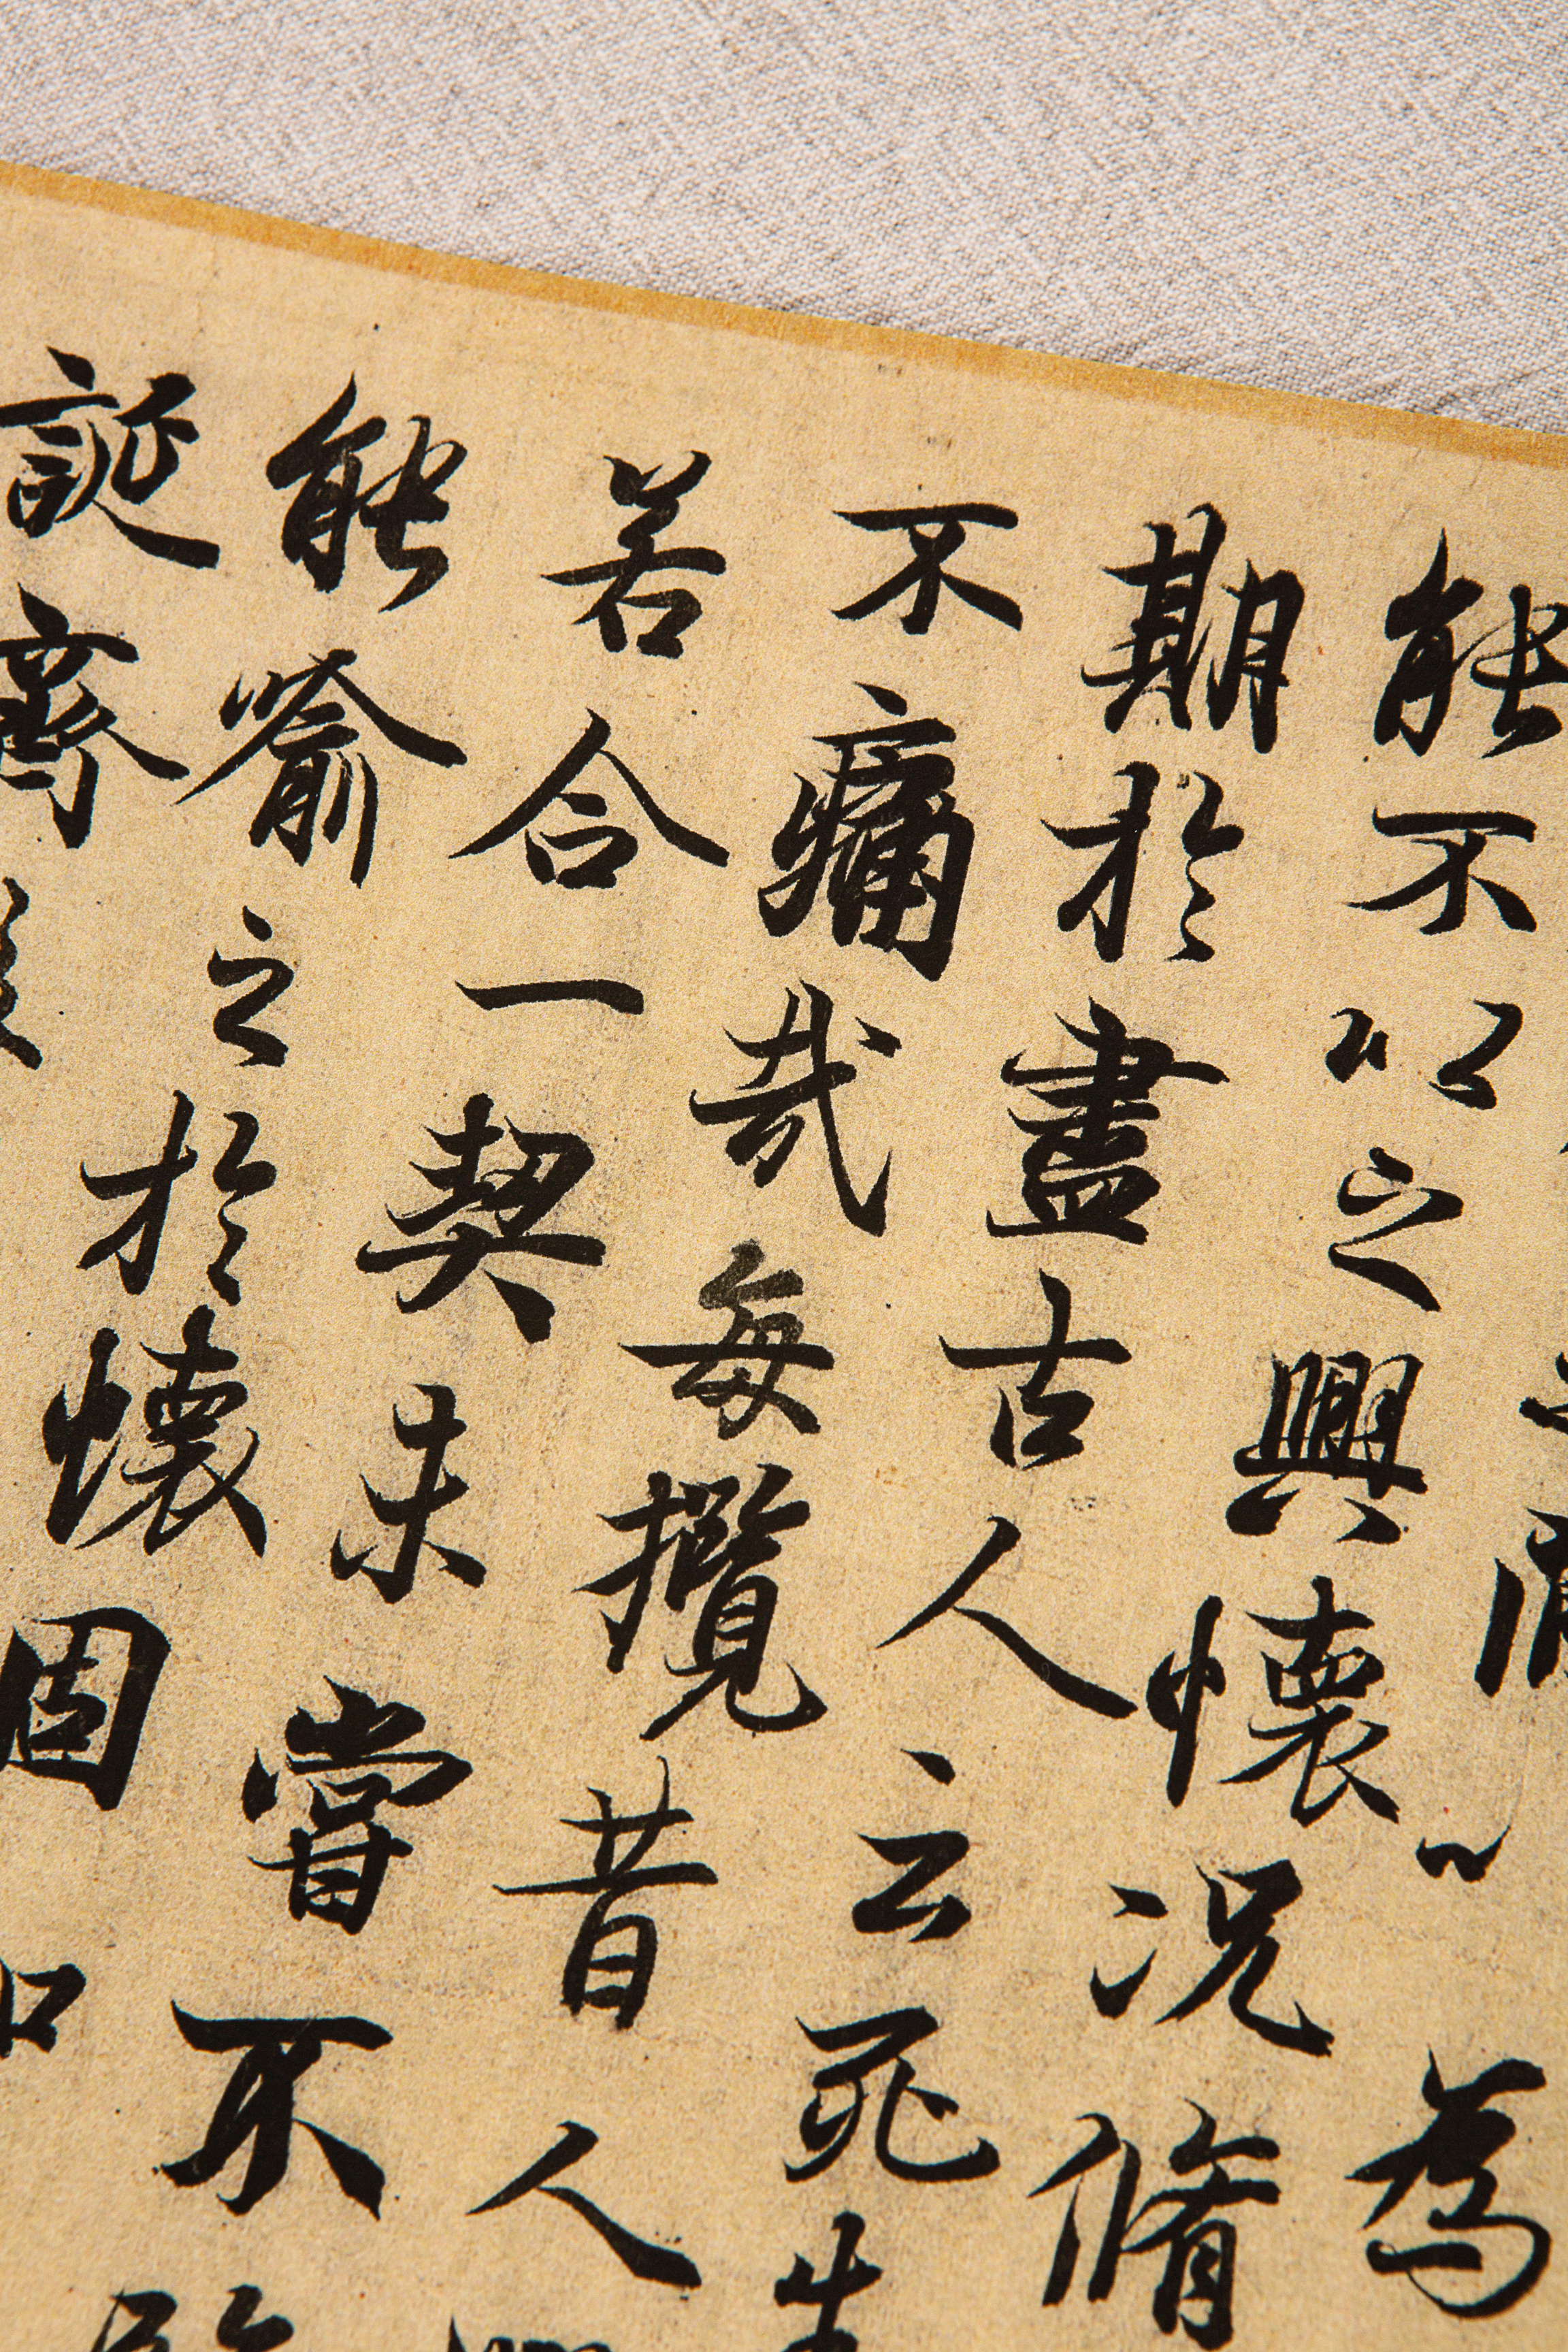 以為
能不以之興懷況脩
期於盡古人云死生
不痛哉每攬昔人
若合一契未嘗不
能喻之於懷固
誕齊